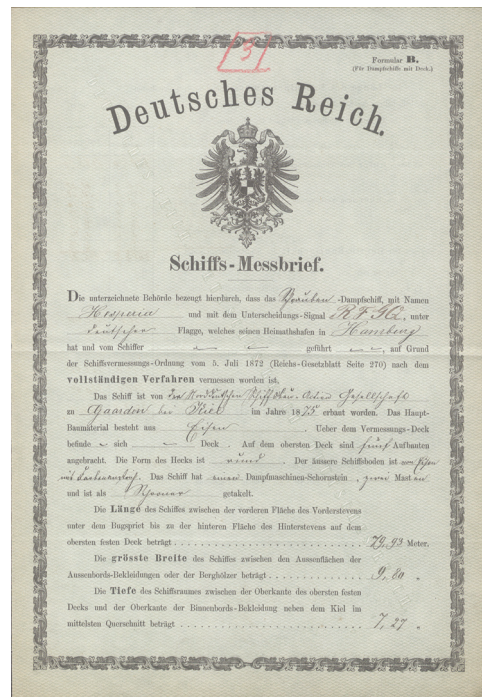 3
Formular B.
(Für Dampfschiffe mit Deck.)
Deutsches Reich.
Schiffs-Messbrief.
Die unterzeichnete Behörde bezeugt hierdurch, dass das Schrauben-Dampfschiff, mit Namen
Hesperia und mit dem Unterscheidungs-Signal, unter
deutscher Flagge, welches seinen Heimathshafen in Hamburg
hat und vom Schiffer geführt, auf Grund
der Schiffsvermessungs-Ordnung vom 5. Juli 1872 (Reichs-Gesetzblatt Seite 270) nach dem
vollständigen Verfahren vermessen worden ist.
Das Schiff ist von der Norddeutschen Schiffbau-Actien Gesellschaft
zu Gaarden bei Kiel im Jahre 1875 erbaut worden. Das Haupt-
Baumaterial besteht aus Eisen. Ueber dem Vermessungs-Deck
befinde sich Deck. Auf dem obersten Deck sind fünf Aufbauten
angebracht. Die Form des Hecks ist rund. Der äussere Schiffsboden ist von Eisen
mit. Das Schiff hat einen Dampfmaschinen-Schornstein, zwei Masten
und ist als Schooner getakelt.
Die Länge des Schiffes zwischen der vorderen Fläche des Vorderstevens
unter dem Bugspriet bis zu der hinteren Fläche des Hinterstevens auf dem
obersten festen Deck beträgt 79,93 Meter.
Die grösste Breite des Schiffes zwischen den Aussenflächen der
Aussenbords-Bekleidungen oder der Berghölzer beträgt 9,80 "
Die Tiefe des Schiffsraumes zwischen der Oberkante des obersten festen
Decks und der Oberkante der Binnenbords-Bekleidung neben dem Kiel im
mittelsten Querschnitt beträgt 7,27 "